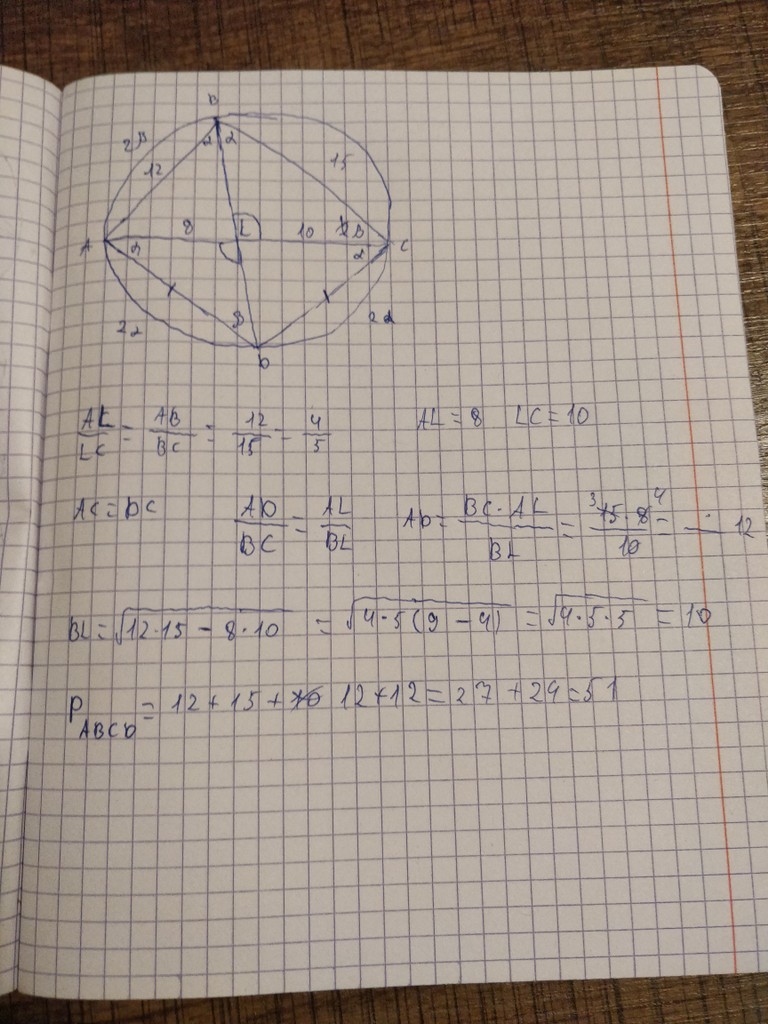 B
2β
α α
12
15
A
8
L
10
β
C
β
α
β
2α
2α
D
AL/LC = AB/BC = 12/15 = 4/5 AL = 8 LC = 10
AC = DC AD/BC = AL/BL AD = BC · AL/BL = 15 · 8/10 = 12
BL = √12·15 − 8·10 = √4·5(9 − 4) = √4·5·5 = 10
P ABCD = 12 + 15 + 12 + 12 = 27 + 24 = 51